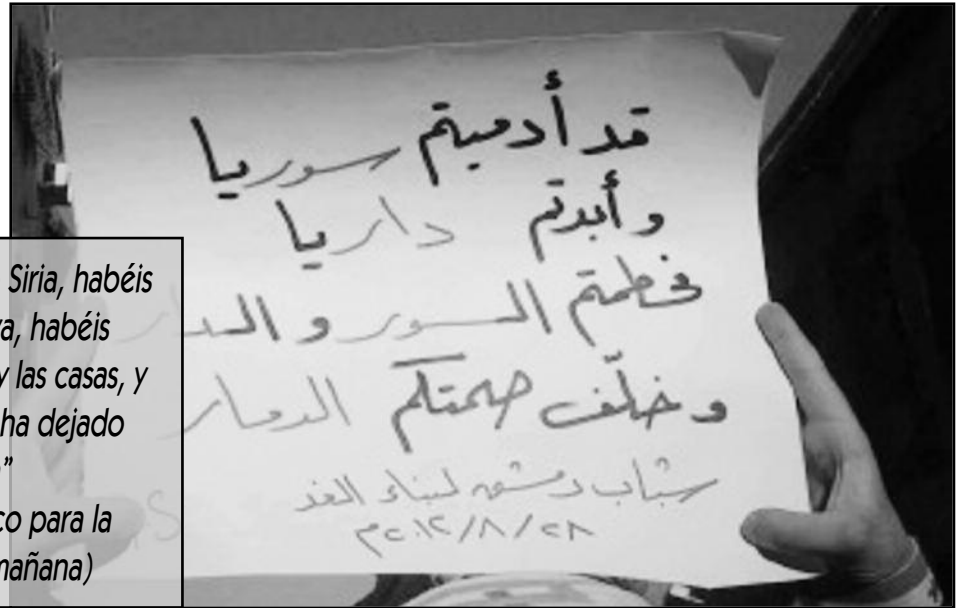 قد أدميتم سوريا
وأبدتم داريا
فحطمتم السور والدار
وخلّف صمتكم الدمار
شباب دمشق لبناء الغد
٢٨/٨/٢٠١٢م
Siria, habéis
habéis
y las casas, y
ha dejado
”
para la
mañana)